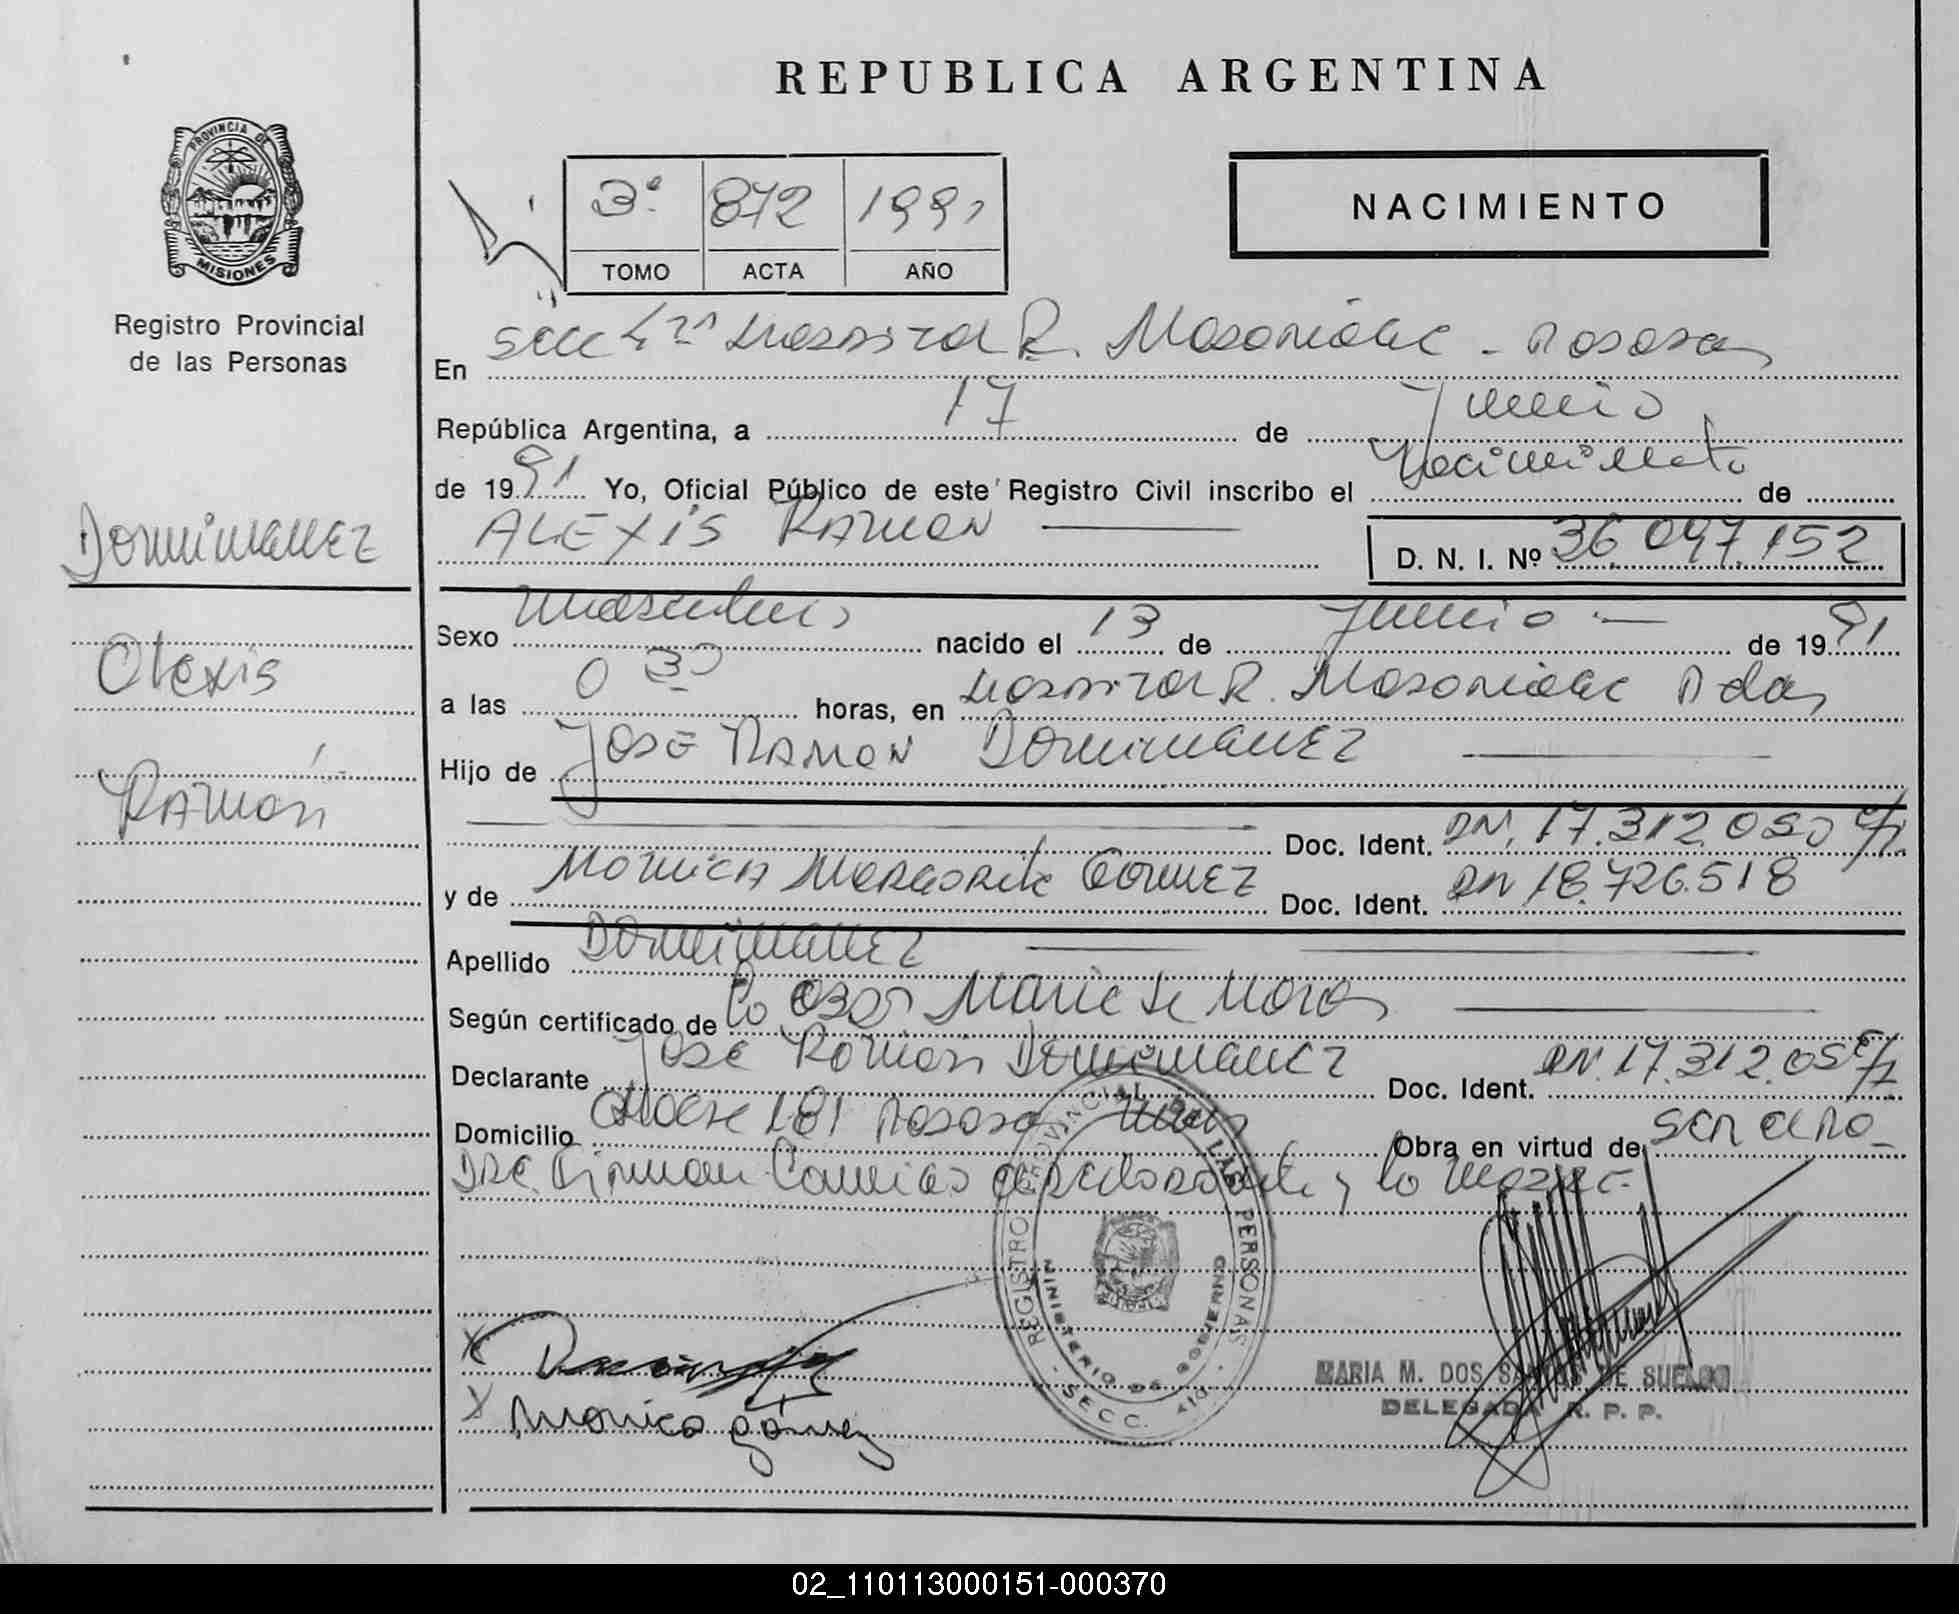 REPUBLICA ARGENTINA
PROVINCIA DE
MISIONES
Registro Provincial
de las Personas
3º 872 1991
TOMO ACTA AÑO
NACIMIENTO
En Secc 4ta Hospital R. Madariaga - Posadas
República Argentina, a 17 de Junio
de 1991 Yo, Oficial Público de este Registro Civil inscribo el Nacimiento de
ALEXIS RAMON D. N. I. Nº 36.097.152
DOMINGUEZ
Alexis
Ramón
Sexo masculino nacido el 13 de Junio de 1991
a las 0 30 horas, en Hospital R. Madariaga Pdas
Hijo de JOSE RAMON DOMINGUEZ
Doc. Ident. DNI. 17.312.050
y de MONICA MARGARITA GOMEZ Doc. Ident. DNI 18.726.518
Apellido DOMINGUEZ
Según certificado de la Obst Marie de Mora
Declarante José Ramón Dominguez Doc. Ident. DNI. 17.312.05
Domicilio 181 Posadas Mnes Obra en virtud de ser el Pa-
dre. Firman Conmigo el declarante y la madre.-
REGISTRO PROVINCIAL DE LAS PERSONAS
MINISTERIO DE GOBIERNO
SECC. 4ta
Monica gómez
MARIA M. DOS SANTOS DE SUELDO
DELEGADA R. P. P.
02_110113000151-000370